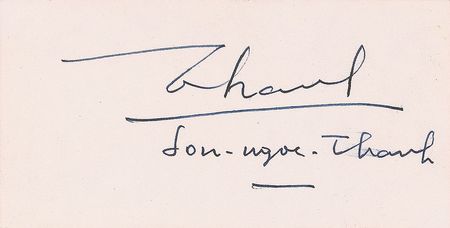 Thanh
Son-ngoc-Thanh